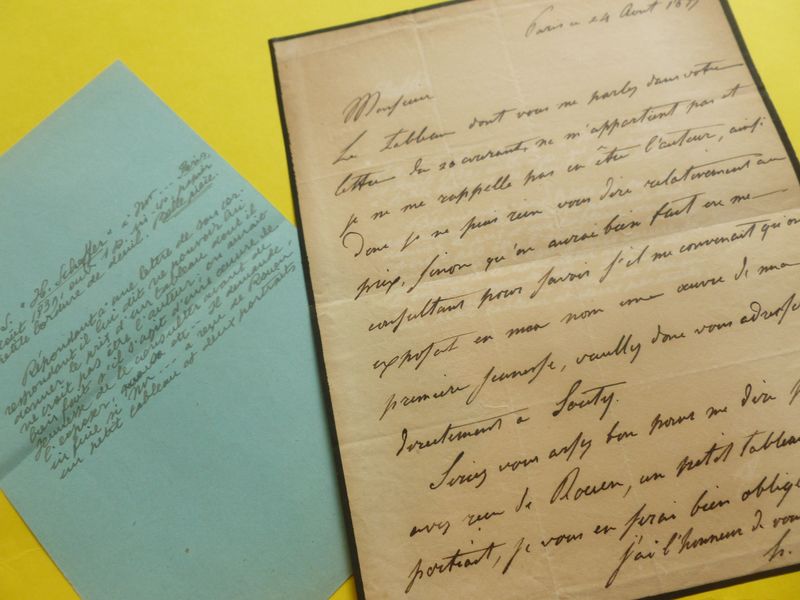 Paris ce 24 Aout 183
Monsieur
Le tableau dont vous me parlez dans votre
lettre du 20 courant, ne m'appartient pas et
je ne me rappelle pas en être l'auteur, ainsi
donc je ne puis rien vous dire relativement au
prix, sinon qu'on aurai bien fait en me
consultant pour savoir s'il me convenait qu'on
exposat en mon nom une œuvre de ma
première jeunesse, veuillez donc vous adresser
directement a Souty.
Seriez vous assez bon pour me dire
avez reçu de Rouen, un petit tableau
portrait, je vous en serai bien obligé
j'ai l'honneur de vous
h.
S. "H. Scheffer" à Mor
août 1837 in-8° papier
petite bordure de deuil. Belle pièce
Répondant à une lettre de son cor-
respondant il lui dit ne pouvoir lui
donner le prix d'un tableau dont il
ne croit pas être l'auteur; on aurait
bien fait, s'il s'agit d'une œuvre de
jeunesse, de le consulter avant de
l'exposer, mais Il demande
in fine si Mor reçu de Rouen
un petit tableau et deux portraits